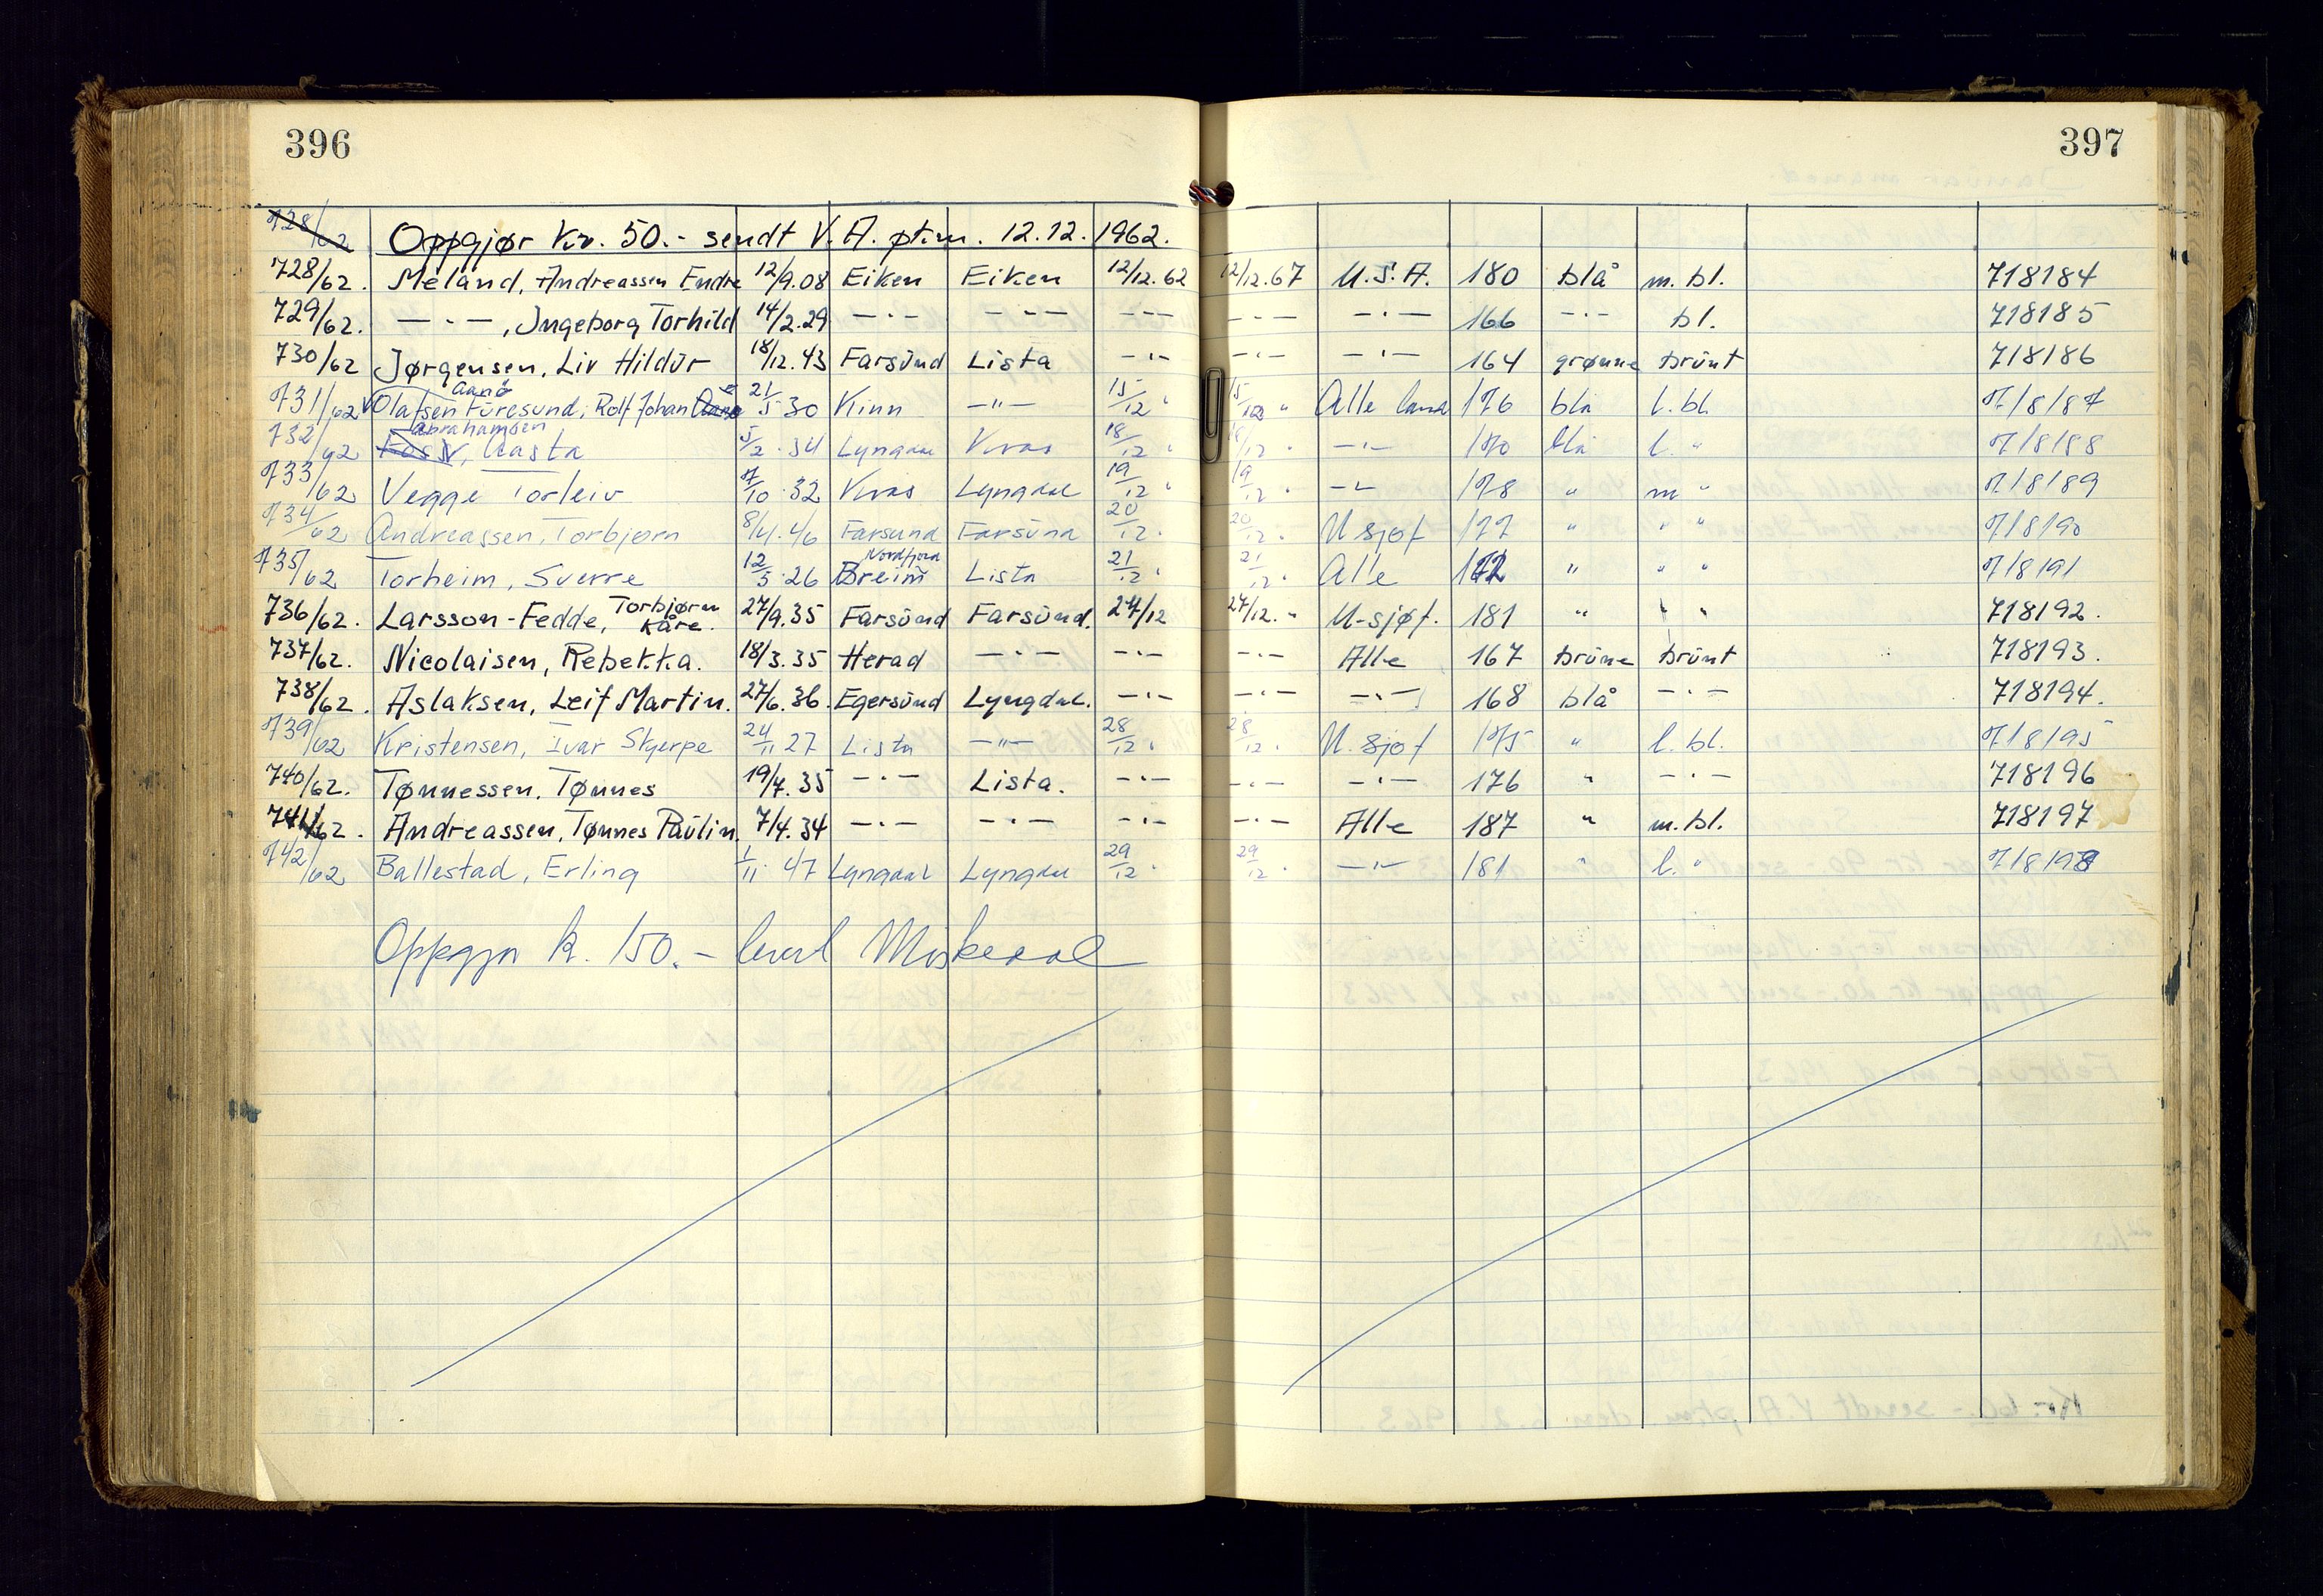 396
397
728/62 Oppgjør kr. 50.- sendt V.A. ptm. 12.12.1962.
728/62. Meland, Andreassen Endre 12/9.08 Eiken Eiken 12/12.62 12/12.67 U.S.A. 180 blå m. bl. 718184
729/62. —·—, Ingeborg Torhild 14/2.29 —·— —·— —·— —·— —·— 166 —·— bl. 718185
730/62 Jørgensen, Liv Hildur 18/12.43 Farsund Lista —·— —·— —·— 164 grønne brunt 718186
Aanø
731/62 Olafsen Furesund, Rolf Johan 21/5 30 Kinn —"— 15/12 " 15/12 " Alle land 176 blå l. bl. 718187
Abrahamsen
732/62 Foss, Aasta 5/2.34 Lyngdal Kvås 18/12 " 18/12 " —"— 170 blå l. " 718188
733/62 Vegge Torleiv 7/10.32 Kvås Lyngdal 19/12 " 19/12 " —"— 178 " m " 718189
734/62 Andreassen, Torbjørn 8/4.46 Farsund Farsund 20/12 " 20/12 " U sjøf 177 " " " 718190
Nordfjord
735/62 Torheim, Sverre 12/5.26 Breim Lista 21/12 " 21/12 " Alle 172 " " " 718191
736/62. Larsson-Fedde, Torbjørn Kåre. 27/9.35 Farsund Farsund. 27/12 27/12. " U-sjøf. 181 " " " 718192.
737/62. Nicolaisen, Rebekka. 18/3.35 Herad —·— —·— —·— Alle 167 brune brunt 718193.
738/62. Aslaksen, Leif Martin. 27/6.36. Egersund Lyngdal. —·— —·— —·— 168 blå —·— 718194.
739/62 Kristensen, Ivar Skjerpe 24/11 27 Lista —"— 28/12 " 28/12 " U. sjøf 175 " l. bl. 718195
740/62. Tønnessen, Tønnes 19/4.35 —·— Lista. —·— —·— —·— 176 " —·— 718196
741/62. Andreassen, Tønnes Paulin. 7/4.34 —·— —·— —·— —·— Alle 187 " m. bl. 718197
742/62 Ballestad, Erling 1/11.47 Lyngdal Lyngdal 29/12 " 29/12 " —"— 181 " l. " 718198
Oppgjør kr. 150.-